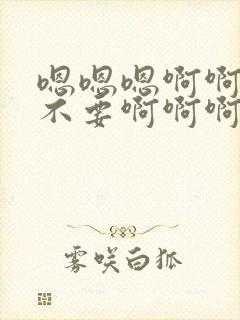 嗯嗯嗯啊啊
不要啊啊啊
雾咲白狐